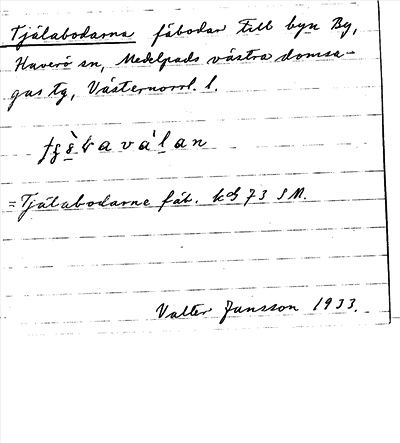 Tjålabodarna fäbodar till byn By,
Haverö sn, Medelpads västra domsa-
gas tg, Västernorrl. l.
= Tjålabodarne fäb. kbl 73 SM.
Valter Jansson 1933.